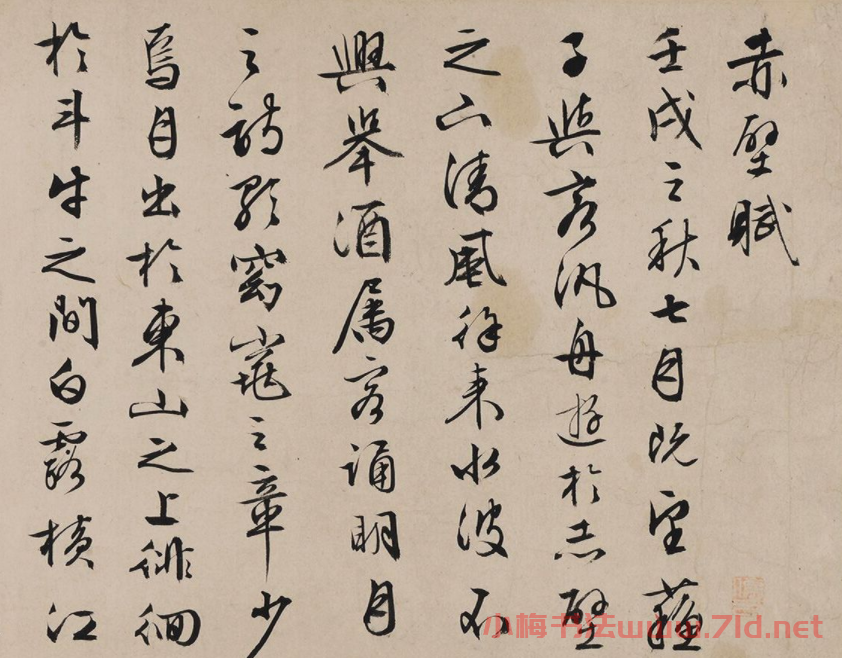 赤壁賦
壬戌之秋七月既望蘇
子與客汎舟遊於赤壁
之下清風徐來水波不
興舉酒属客誦明月
之詩歌窈窕之章少
焉月出於東山之上徘徊
於斗牛之間白露横江
小梅书法www.7ld.net